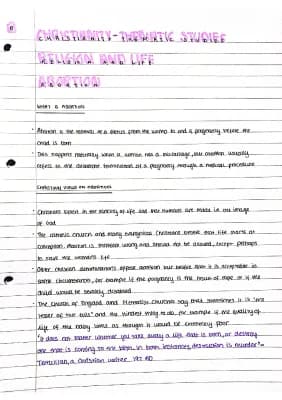 CHRISTIANITY - THEMATIC STUDIES
RELIGION AND LIFE
ABORTION
WHAT IS ABORTION
• Abortion is the removal of a foetus from the womb to end a pregnancy before the
child is born
• This happens naturally when a woman has a miscarriage, but abortion usually
refers to the deliberate termination of a pregnancy through a medical procedure
CHRISTIAN VIEWS ON ABORTION
• Christians believe in the sanctity of life and that humans are made in the image
of God
• The Catholic Church and many Evangelical Christians believe that life starts at
conception. Abortion is therefore wrong and should not be allowed, except perhaps
to save the woman's life
• Other Christian denominations oppose abortion but believe that it is acceptable in
some circumstances, for example if the pregnancy is the result of rape or if the
child would be severely disabled
• The Church of England and Methodist Churches say that sometimes it is 'the
lesser of two evils' and the kindest thing to do, for example if the quality of
life of the baby were as though it would be extremely poor
"it does not matter whether you take away a life that is born, or destroy
one that is coming to the birth. In both instances, destruction is murder" -
Tertullian, a Christian writer